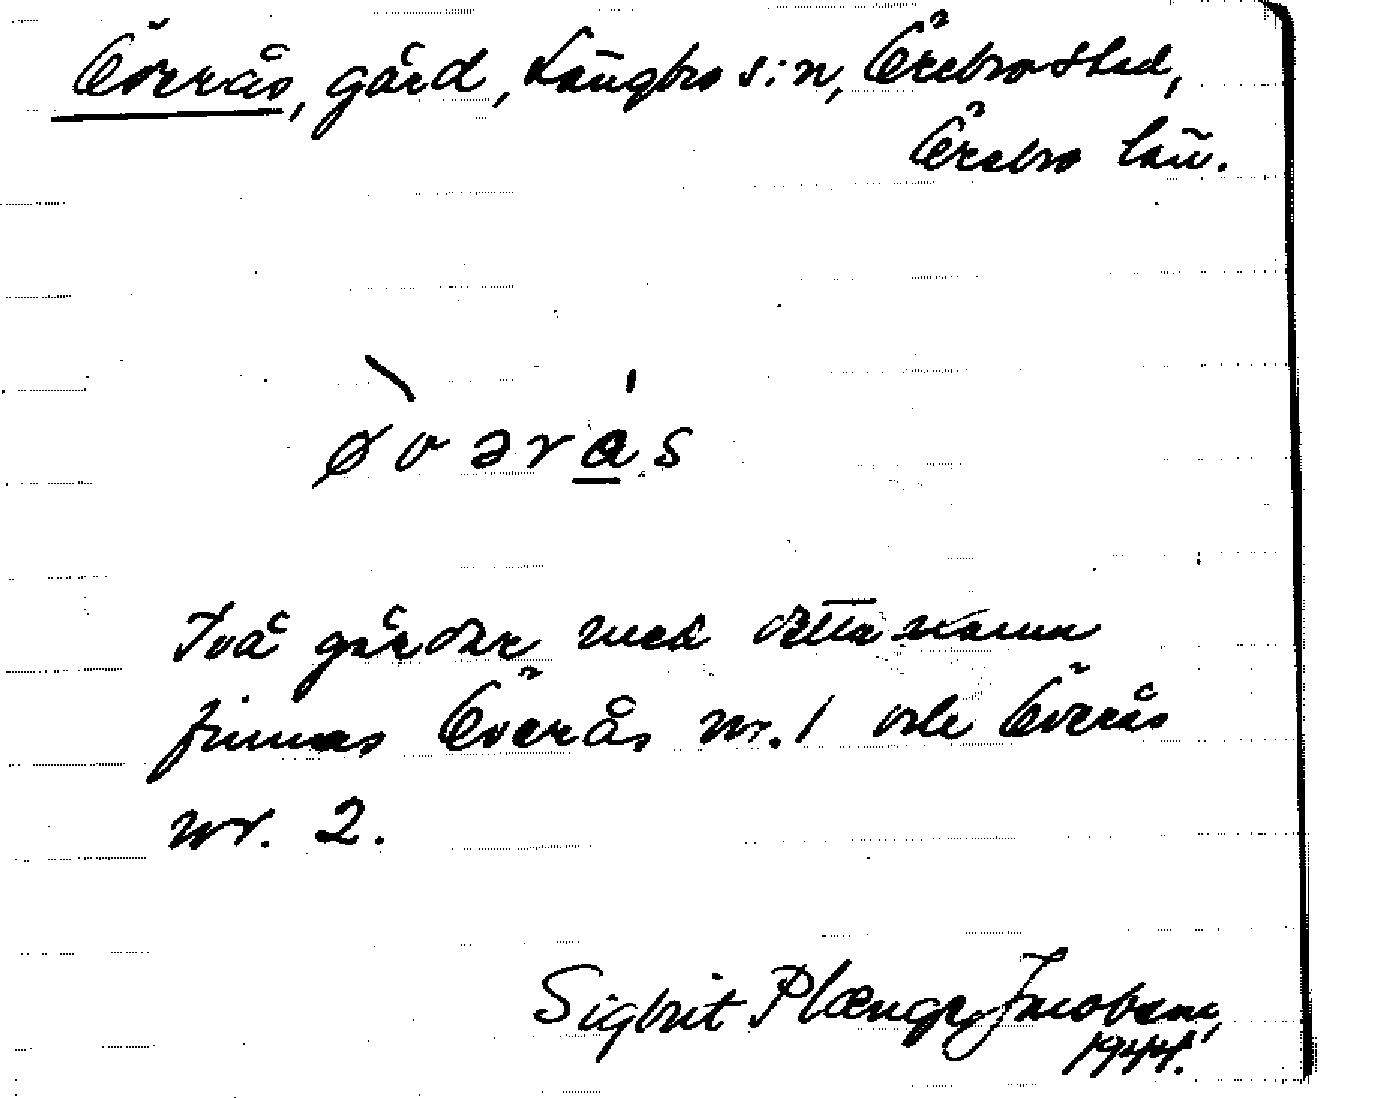 Överås, gård, Längbro s:n, Örebro Hed,
Örebro län.
øvəras
Två gårdar med detta namn
finnas Överås nr. 1 och Överås
nr. 2.
Sigbrit Plænge Jacobson,
1944.